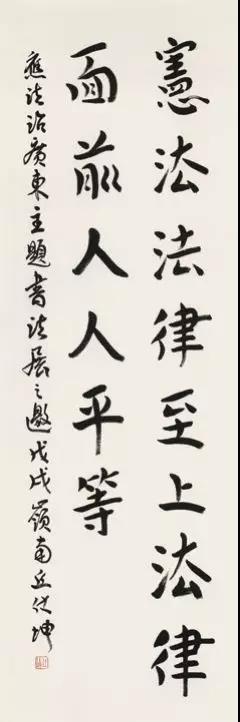 憲法法律至上法律
面前人人平等
應法治廣東主題書法展之邀戊戌嶺南丘仕坤